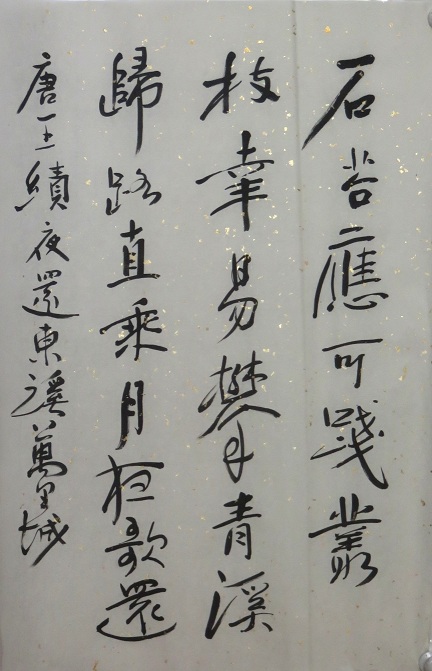 石苔應可踐叢
枝幸易攀青溪
歸路直乘月夜歌還
唐王績夜還東溪萬里城